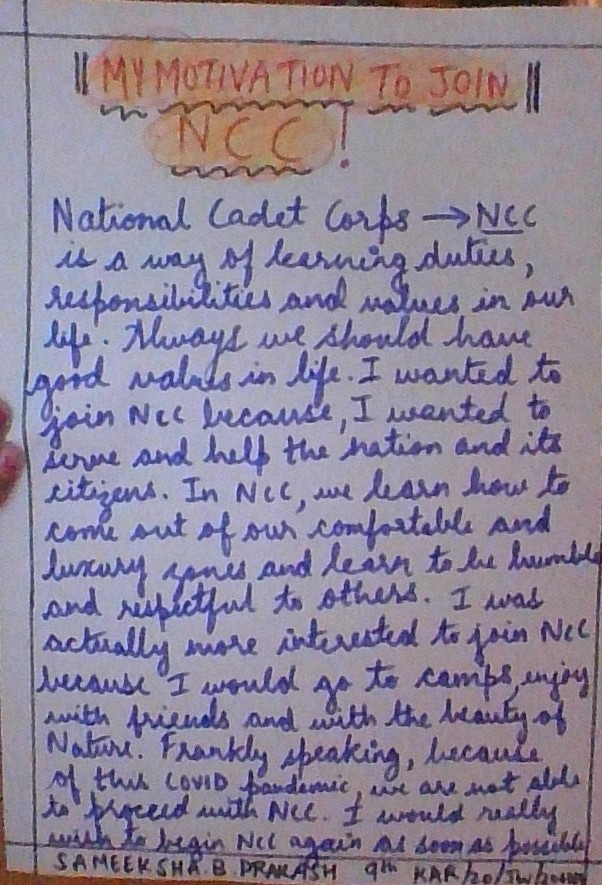 || MY MOTIVATION TO JOIN ||
NCC!
National Cadet Corps → NCC
is a way of learning duties,
responsibilities and values in our
life. Always we should have
good values in life. I wanted to
join NCC because, I wanted to
serve and help the nation and its
citizens. In NCC, we learn how to
come out of our comfortable and
luxury zones and learn to be humble
and respectful to others. I was
actually more interested to join NCC
because I would go to camps, enjoy
with friends and with the beauty of
Nature. Frankly speaking, because
of this COVID pandemic, we are not able
to proceed with NCC. I would really
wish to begin NCC again as soon as possible
SAMEEKSHA.B.PRAKASH 9th